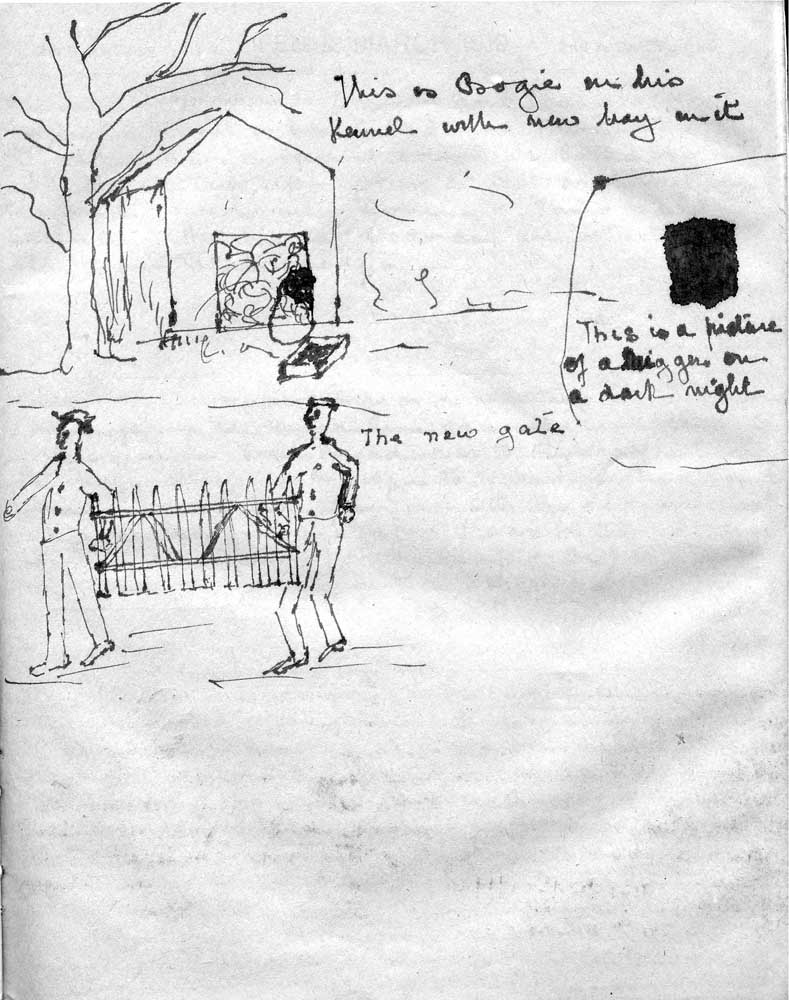 This is Boogie in his
Kennel with new hay in it
This is a picture
of a nigger on
a dark night
The new gate